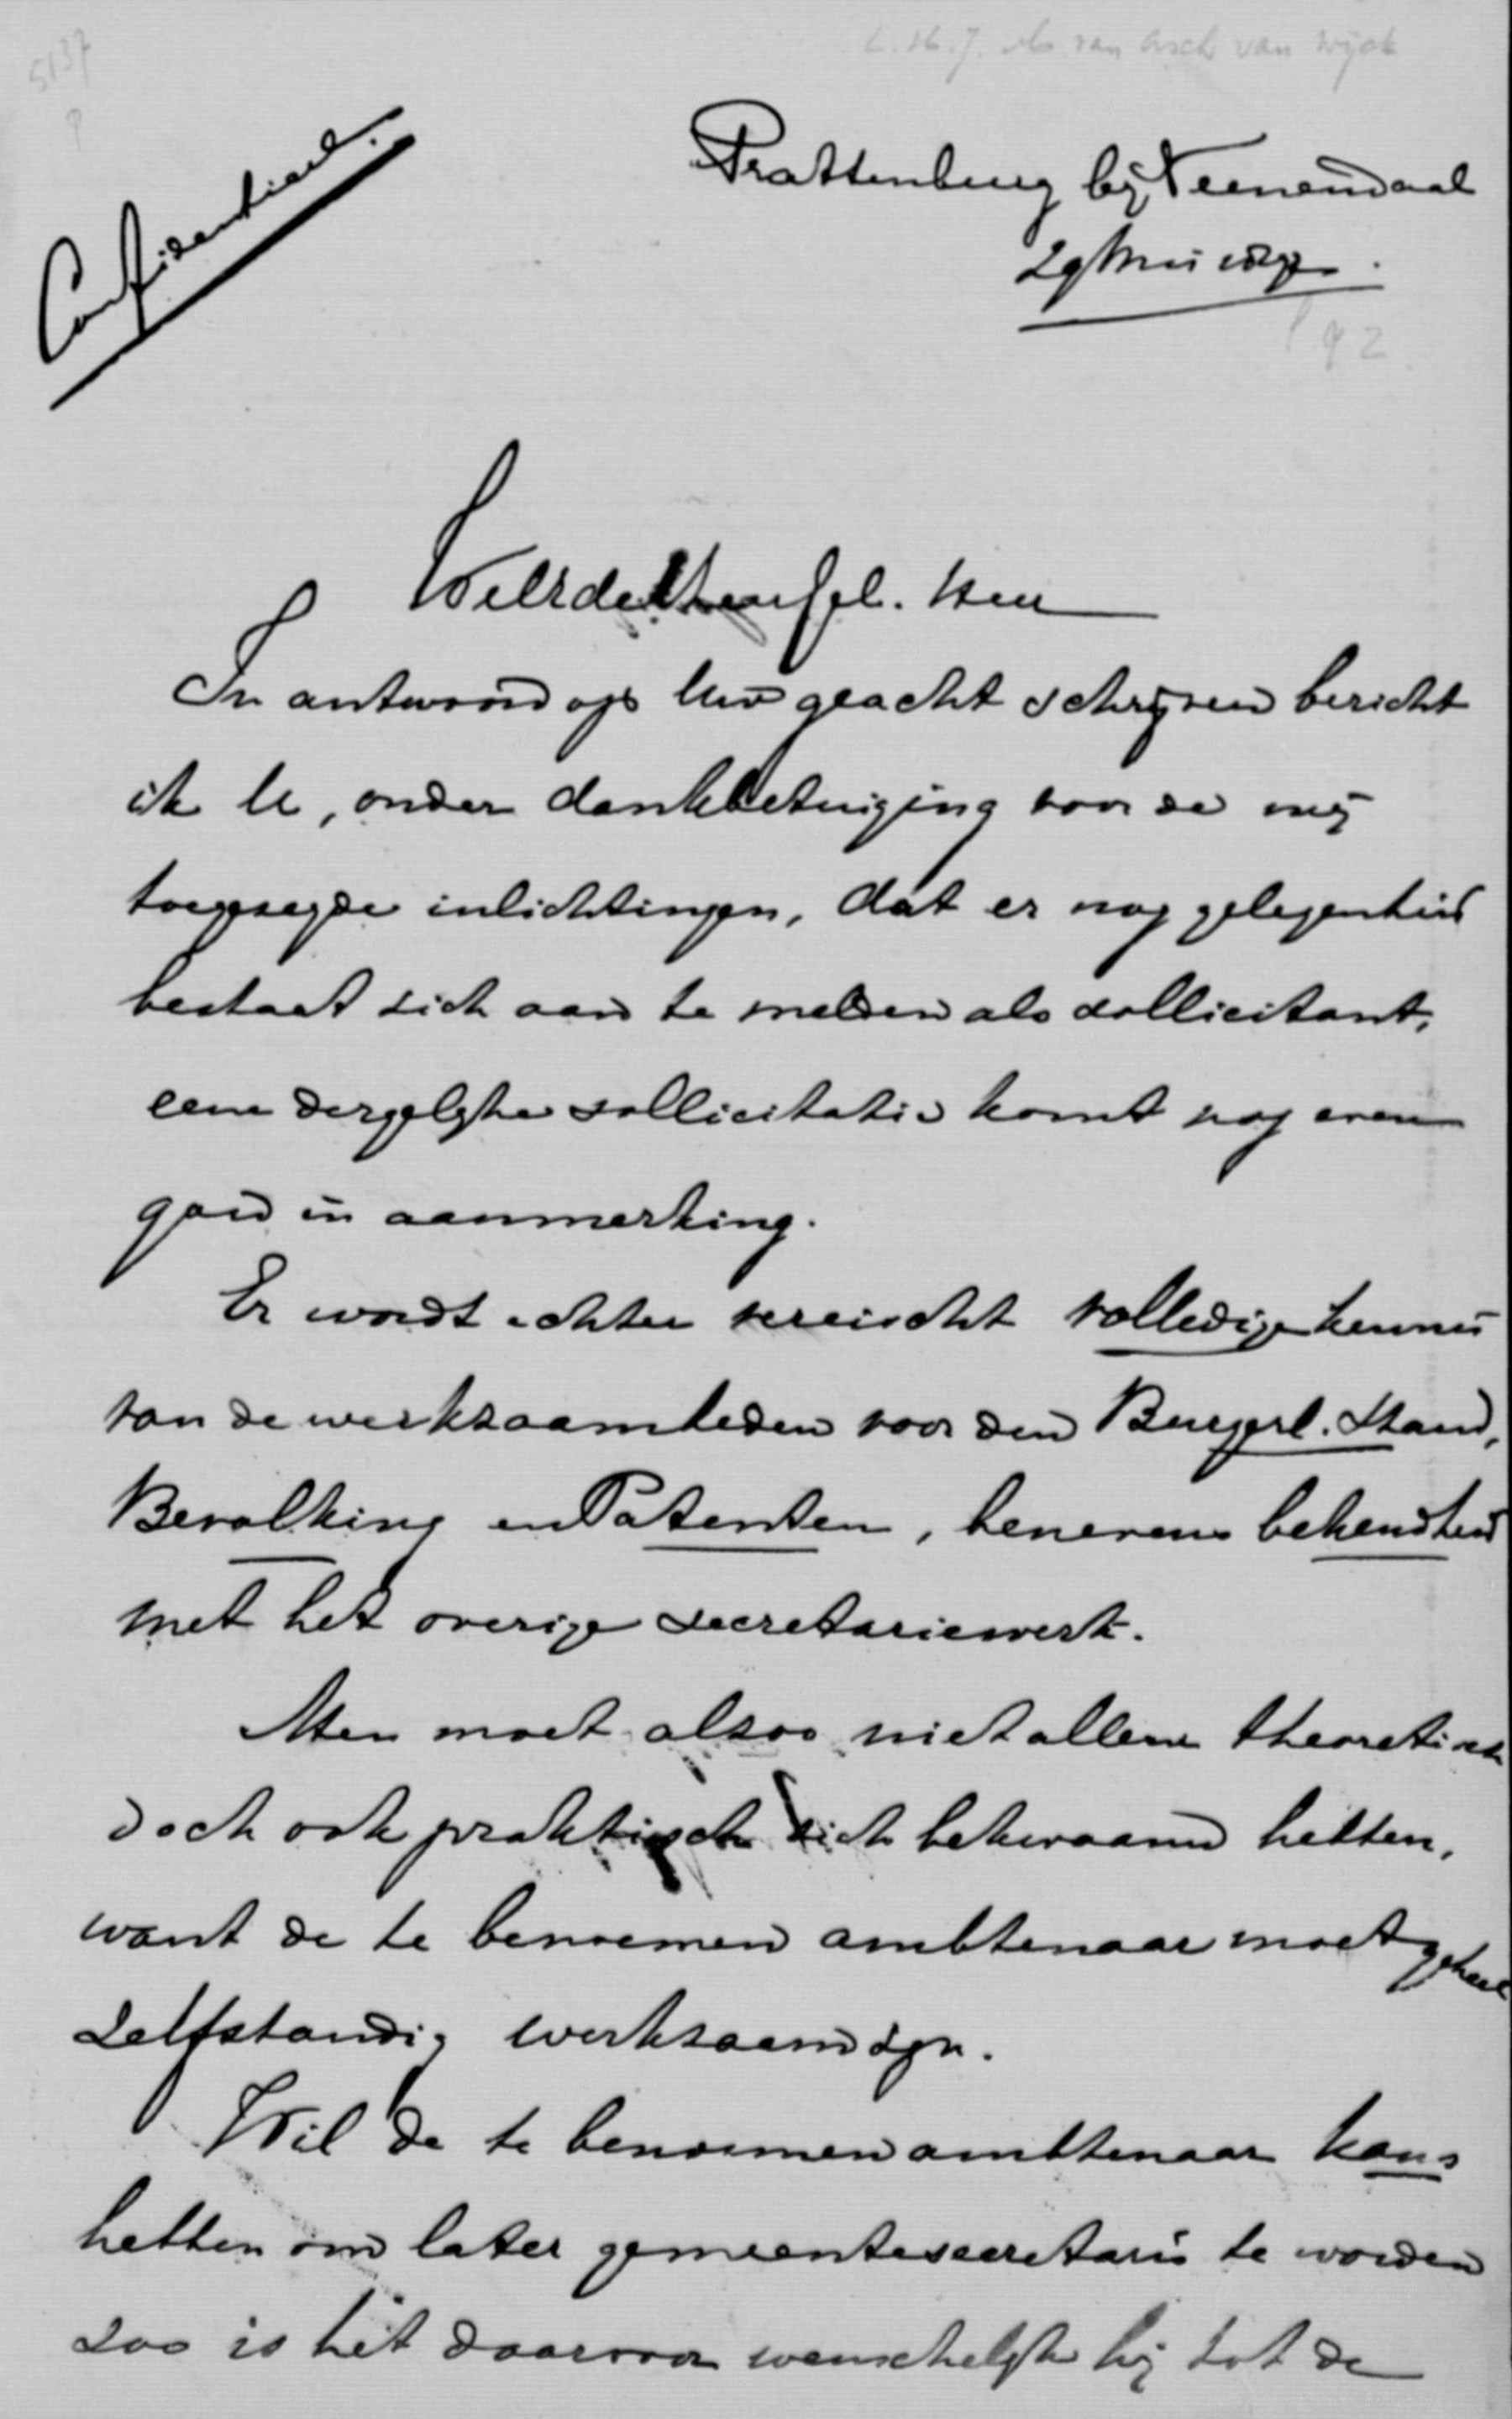 5137
L.H.J. M. van Asch van Wijck
Confidentieel.
Prattenburg bij Veenendaal
29 Mei
92
WelEerw. Zeer Gel. Heer
In antwoord op Uw geacht schrijven bericht
ik U, onder dankbetuiging voor de mij
toegezegde inlichtingen, dat er nog gelegenheid
bestaat zich aan te melden als sollicitant,
eene dergelijke sollicitatie komt nog even
goed in aanmerking.
Er wordt echter vereischt volledige kennis
van de werkzaamheden voor den Burgerl. Stand,
Bevolking en Patenten, benevens bekendheid
met het overige secretariewerk.
Men moet alzoo niet alleen theoretisch
doch ook praktisch zich bekwaamd hebben,
want de te benoemen ambtenaar moet geheel
zelfstandig werkzaam zijn.
Wil de te benoemen ambtenaar kans
hebben om later gemeentesecretaris te worden
zoo is het daarvoor wenschelijk hij tot de